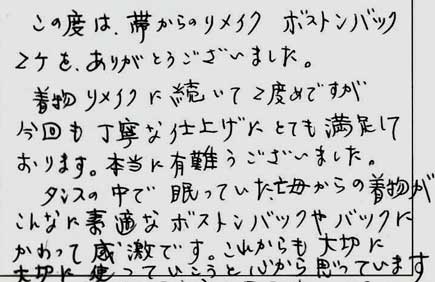 この度は、帯からのリメイク ボストンバック
2ケを、ありがとうございました。
着物リメイクに続いて2度めですが
今回も丁寧な仕上げにとても満足して
おります。本当に有難うございました。
タンスの中で眠っていた亡母からの着物が
こんなに素適なボストンバックやバックに
かわって感激です。これからも大切に
大切に使っていこうと心から思っています